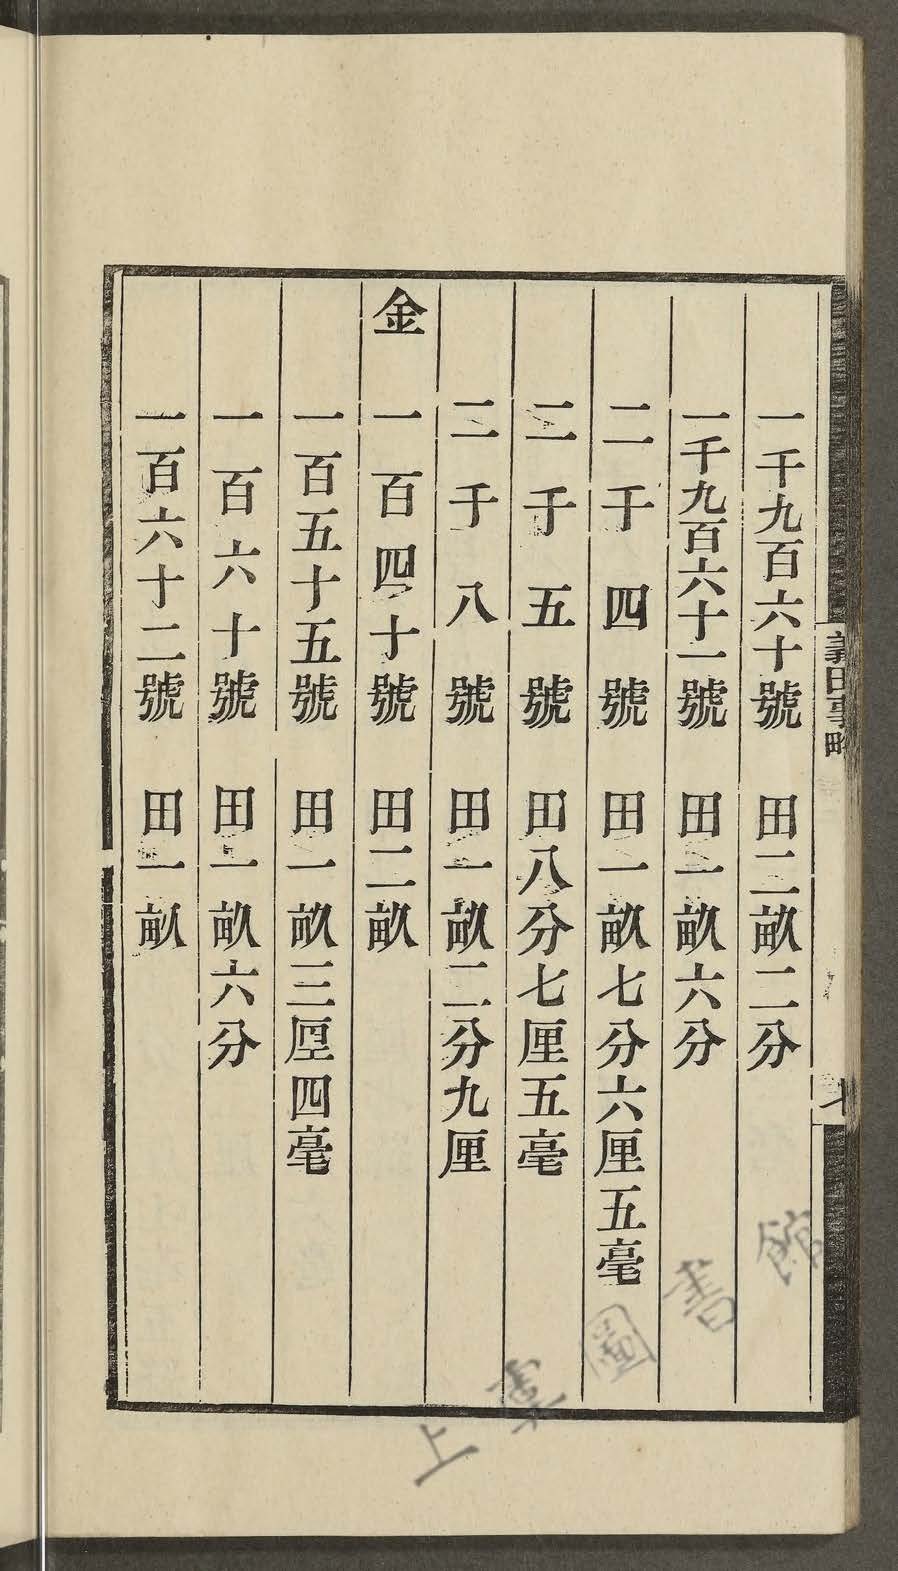 義田事略
一千九百六十號 田二畝二分
一千九百六十一號 田一畝六分
二千四號 田一畝七分六厘五毫
二千五號 田八分七厘五毫
二千八號 田一畝二分九厘
金 一百四十號 田二畝
一百五十五號 田一畝三厘四毫
一百六十號 田一畝六分
一百六十二號 田一畝
上虞圖書館